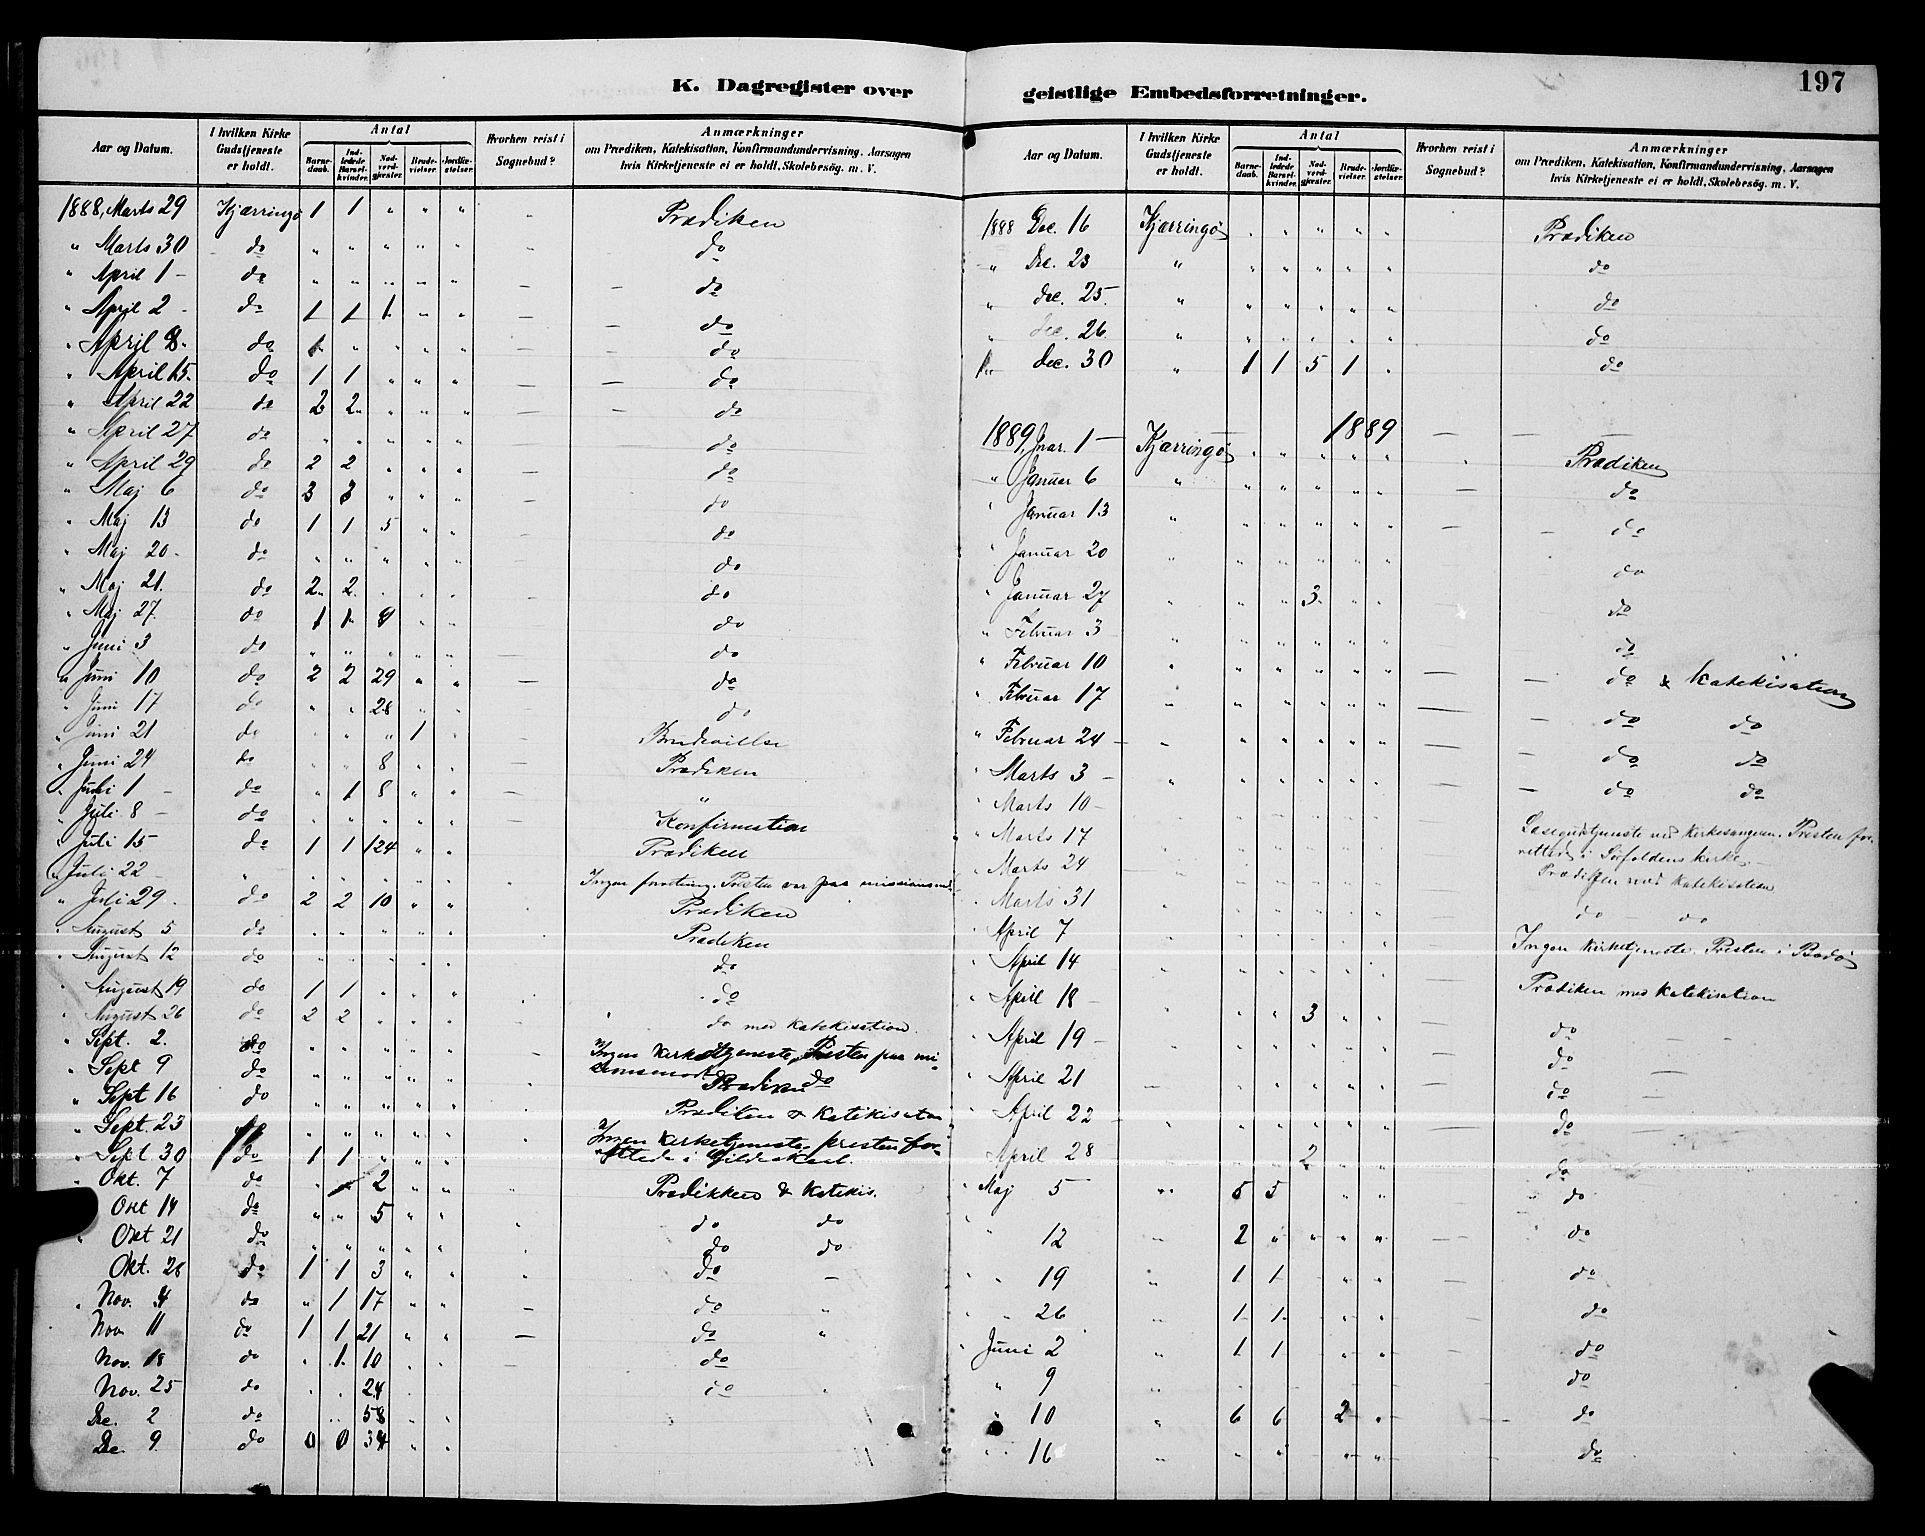 K. Dagregister over geistlige Embedsforretninger.
197
Aar og Datum. | I hvilken Kirke Gudstjeneste er holdt. | Antal | Barnedaab. | Indledede Barselkvinder. | Nadverdgjester. | Brudevielser. | Jordfæstelser. | Hvorhen reist i Sognebud? | Anmærkninger om Prædiken, Katekisation, Konfirmandundervisning, Aarsagen hvis Kirketjeneste ei er holdt, Skolebesøg. m. V.
1888, Marts 29 Kjærringø 1 1 " " " " Prædiken
" Marts 30 do " " " " " " do
" April 1 - do " " " " " - do
" April 2 - do 1 1 1 " " - do
" April 8 - do 1 " " " " - do
" April 15. do 1 1 " " " - do
" April 22 do 2 2 " " " - do
" April 27 do " " " " " - do
" April 29 do 2 2 " " " - do
" Maj 6 do 3 3 " " " - do
" Maj 13 do 1 1 5 " " - do
" Maj 20 - do " " " " " - do
" Maj 21. do 2 2 " " " - do
" Maj 27. do 1 1 9 " " - do
" Juni 3 do " " " " " - do
" Juni 10 do 2 2 29 " " - do
" Juni 17 do " " 28 " " do
" Juni 21 do " " " 1 " - Brudevielse
" Juni 24 do " " 8 " " - Prædiken
" Juli 1 - do " 1 8 " " - "
" Juli 8 - do " " " " " - Konfirmation
" Juli 15 do 1 1 124 " " Prædiken
" Juli 22 - " " " " " " Ingen forretning. Presten var paa missionsmøde
" Juli 29 do 2 2 10 " " Prædiken
" August 5 do " " " " " Prædiken
" August 12 do " " " " " do
" August 19 do 1 1 " " " do
" August 26 do 2 2 " " " do med katekisation.
" Sept. 2. do " " " " " Ingen Kirketjeneste, Presten paa mi-
sionsmøde
" Sept 9 do " " " " " Prædiken do
" Sept 16 do " " " " " Prædiken & Katekisation
" Sept. 23 " " " " " Ingen Kirketjeneste, presten for-
rettede i Gildeskaal.
" Sept 30 do 1 1 " " "
" Okt. 7 do " " 2 " " " Prædikken & Katekis.
Okt 14 do " " 5 " " do do
" Okt 21 do " " " " " do do
Okt. 28 do 1 1 3 " " do -
" Nov. 4 do " 1 17 " " - do "
Nov 11 do 1 1 21 " " - do "
Nov. 18 do " 1 10 " " - do
Nov. 25 do " " 24 " do "
Dec. 2 do " " 58 " "
Dec. 9 do 0 0 34 " "
Aar og Datum. | I hvilken Kirke Gudstjeneste er holdt. | Antal | Barnedaab. | Indledede Barselkvinder. | Nadverdgjester. | Brudevielser. | Jordfæstelser. | Hvorhen reist i Sognebud? | Anmærkninger om Prædiken, Katekisation, Konfirmandundervisning, Aarsagen hvis Kirketjeneste ei er holdt, Skolebesøg. m. V.
1888 Dec. 16 Kjærringø " " " " " Prædiken
" Dec. 23 " " " " " " do
" dec. 25. " " " " " " do
" dec. 26. " " " " " " do
" dec. 30 " 1 1 5 1 " do
1889
1889, Jnar. 1 - Kjærringø " " " " " " Prædiken
" Januar 6 " " " " " " - do
" Januar 13 " " " " " " - do
" Januar 20 " " " " " " do
" Januar 27 " " " 3 " " do
" Februar 3 " " " " " " do
" Februar 10 " " " " " " - do & Katekisation
" Februar 17 " " " " " " - do do
" Februar 24 - " " " " " " - do do
" Marts 3 - " " " " " " - do do
" Marts 10 - Læsegudstjeneste ved Kirkesangeren. Presten for-
rettede i Sørfoldens kirke.
" Marts 17 " " " " " " Prædiken med Katekisation
" Marts 24 " " " " " " do - do
" Marts 31
" April 7 " " " " " " Ingen Kirketjeneste. Presten i Bodø
" April 14 " " " " " " Prædiken med Katekisation
" April 18 - " " " 3 " " do
" April 19 - " " " " " " do
" April 21 " " " " " " do
" April 22 " " " " " " do
" April 28 " " 2 " " do
" Maj 5 " 5 5 " " do
" " 12 " 2 " " " " do
" " 19 " 1 1 " " do
" " 26 " 1 1 " " do
" Juni 2 " 1 1 " " do
" 9 " do
" 10 " 6 6 2 " do
" " 16 " " " " " do